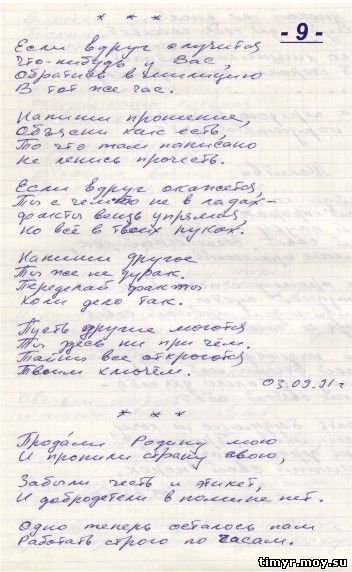 * * *
- 9 -
Если вдруг случится
Что-нибудь у Вас,
Обратись в милицию
В тот же час.
Напиши прошение,
Объясни как есть,
То что там написано
Не ленись прочесть.
Если вдруг окажется,
Ты с чем-то не в ладах -
Факты вещь упрямая,
Но всё в твоих руках.
Напиши другое
Ты же не дурак.
Переделай факты
Коли дело так.
Пусть другие молотся
Ты здесь ни при чём.
Тайны все откроются
Твоим ключём.
03.09.91г
* * *
Продали Родину мою
И пропили страну свою,
Забыли честь и этикет,
И добродетели в помине нет.
Одно теперь осталось нам
Работать строго по часам.
timyr.moy.su